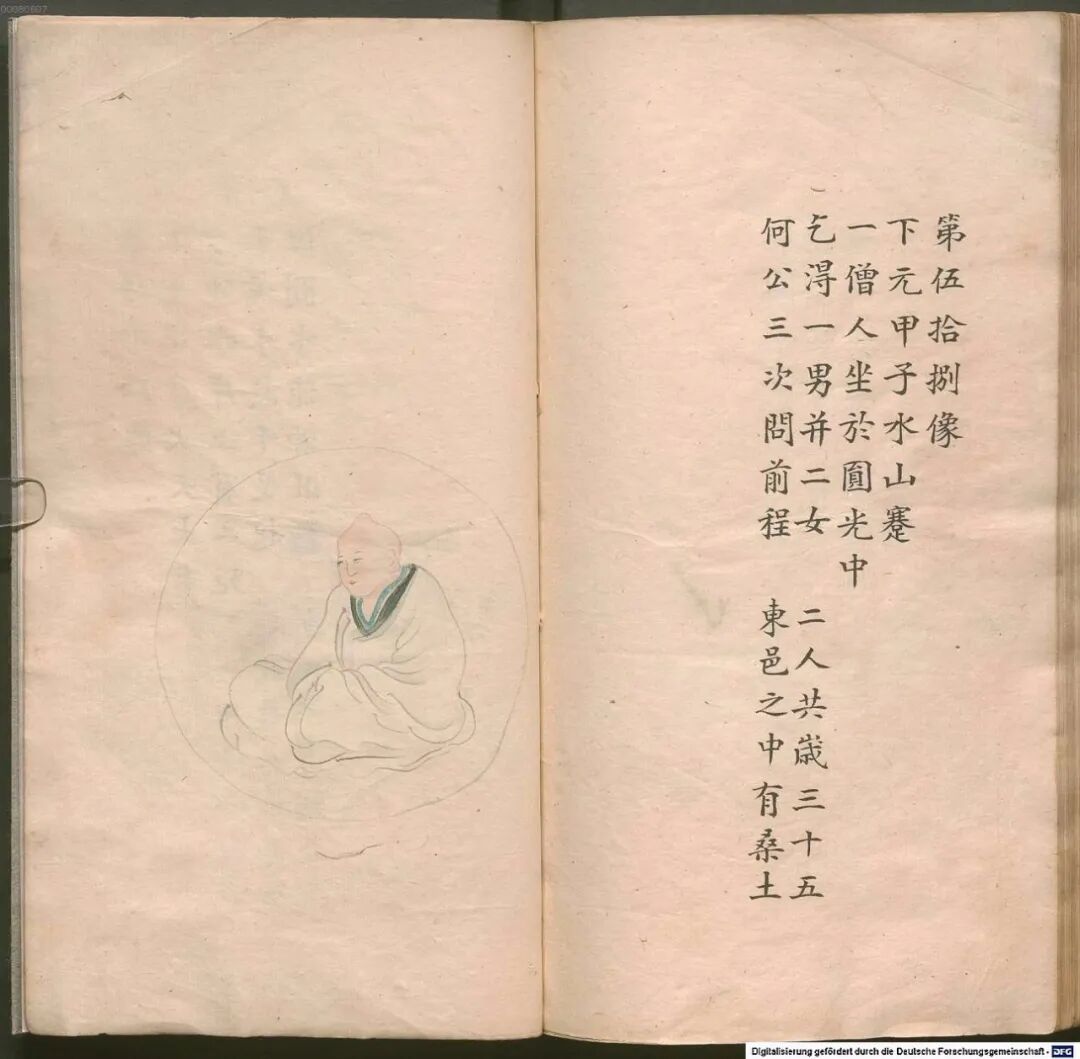 第伍拾捌像
下元甲子水山蹇
一僧人坐於圓光中
乞淂一男并二女 二人共歳三十五
何公三次問前程 東邑之中有桑土
00080607
Digitalisierung gefördert durch die Deutsche Forschungsgemeinschaft - DFG